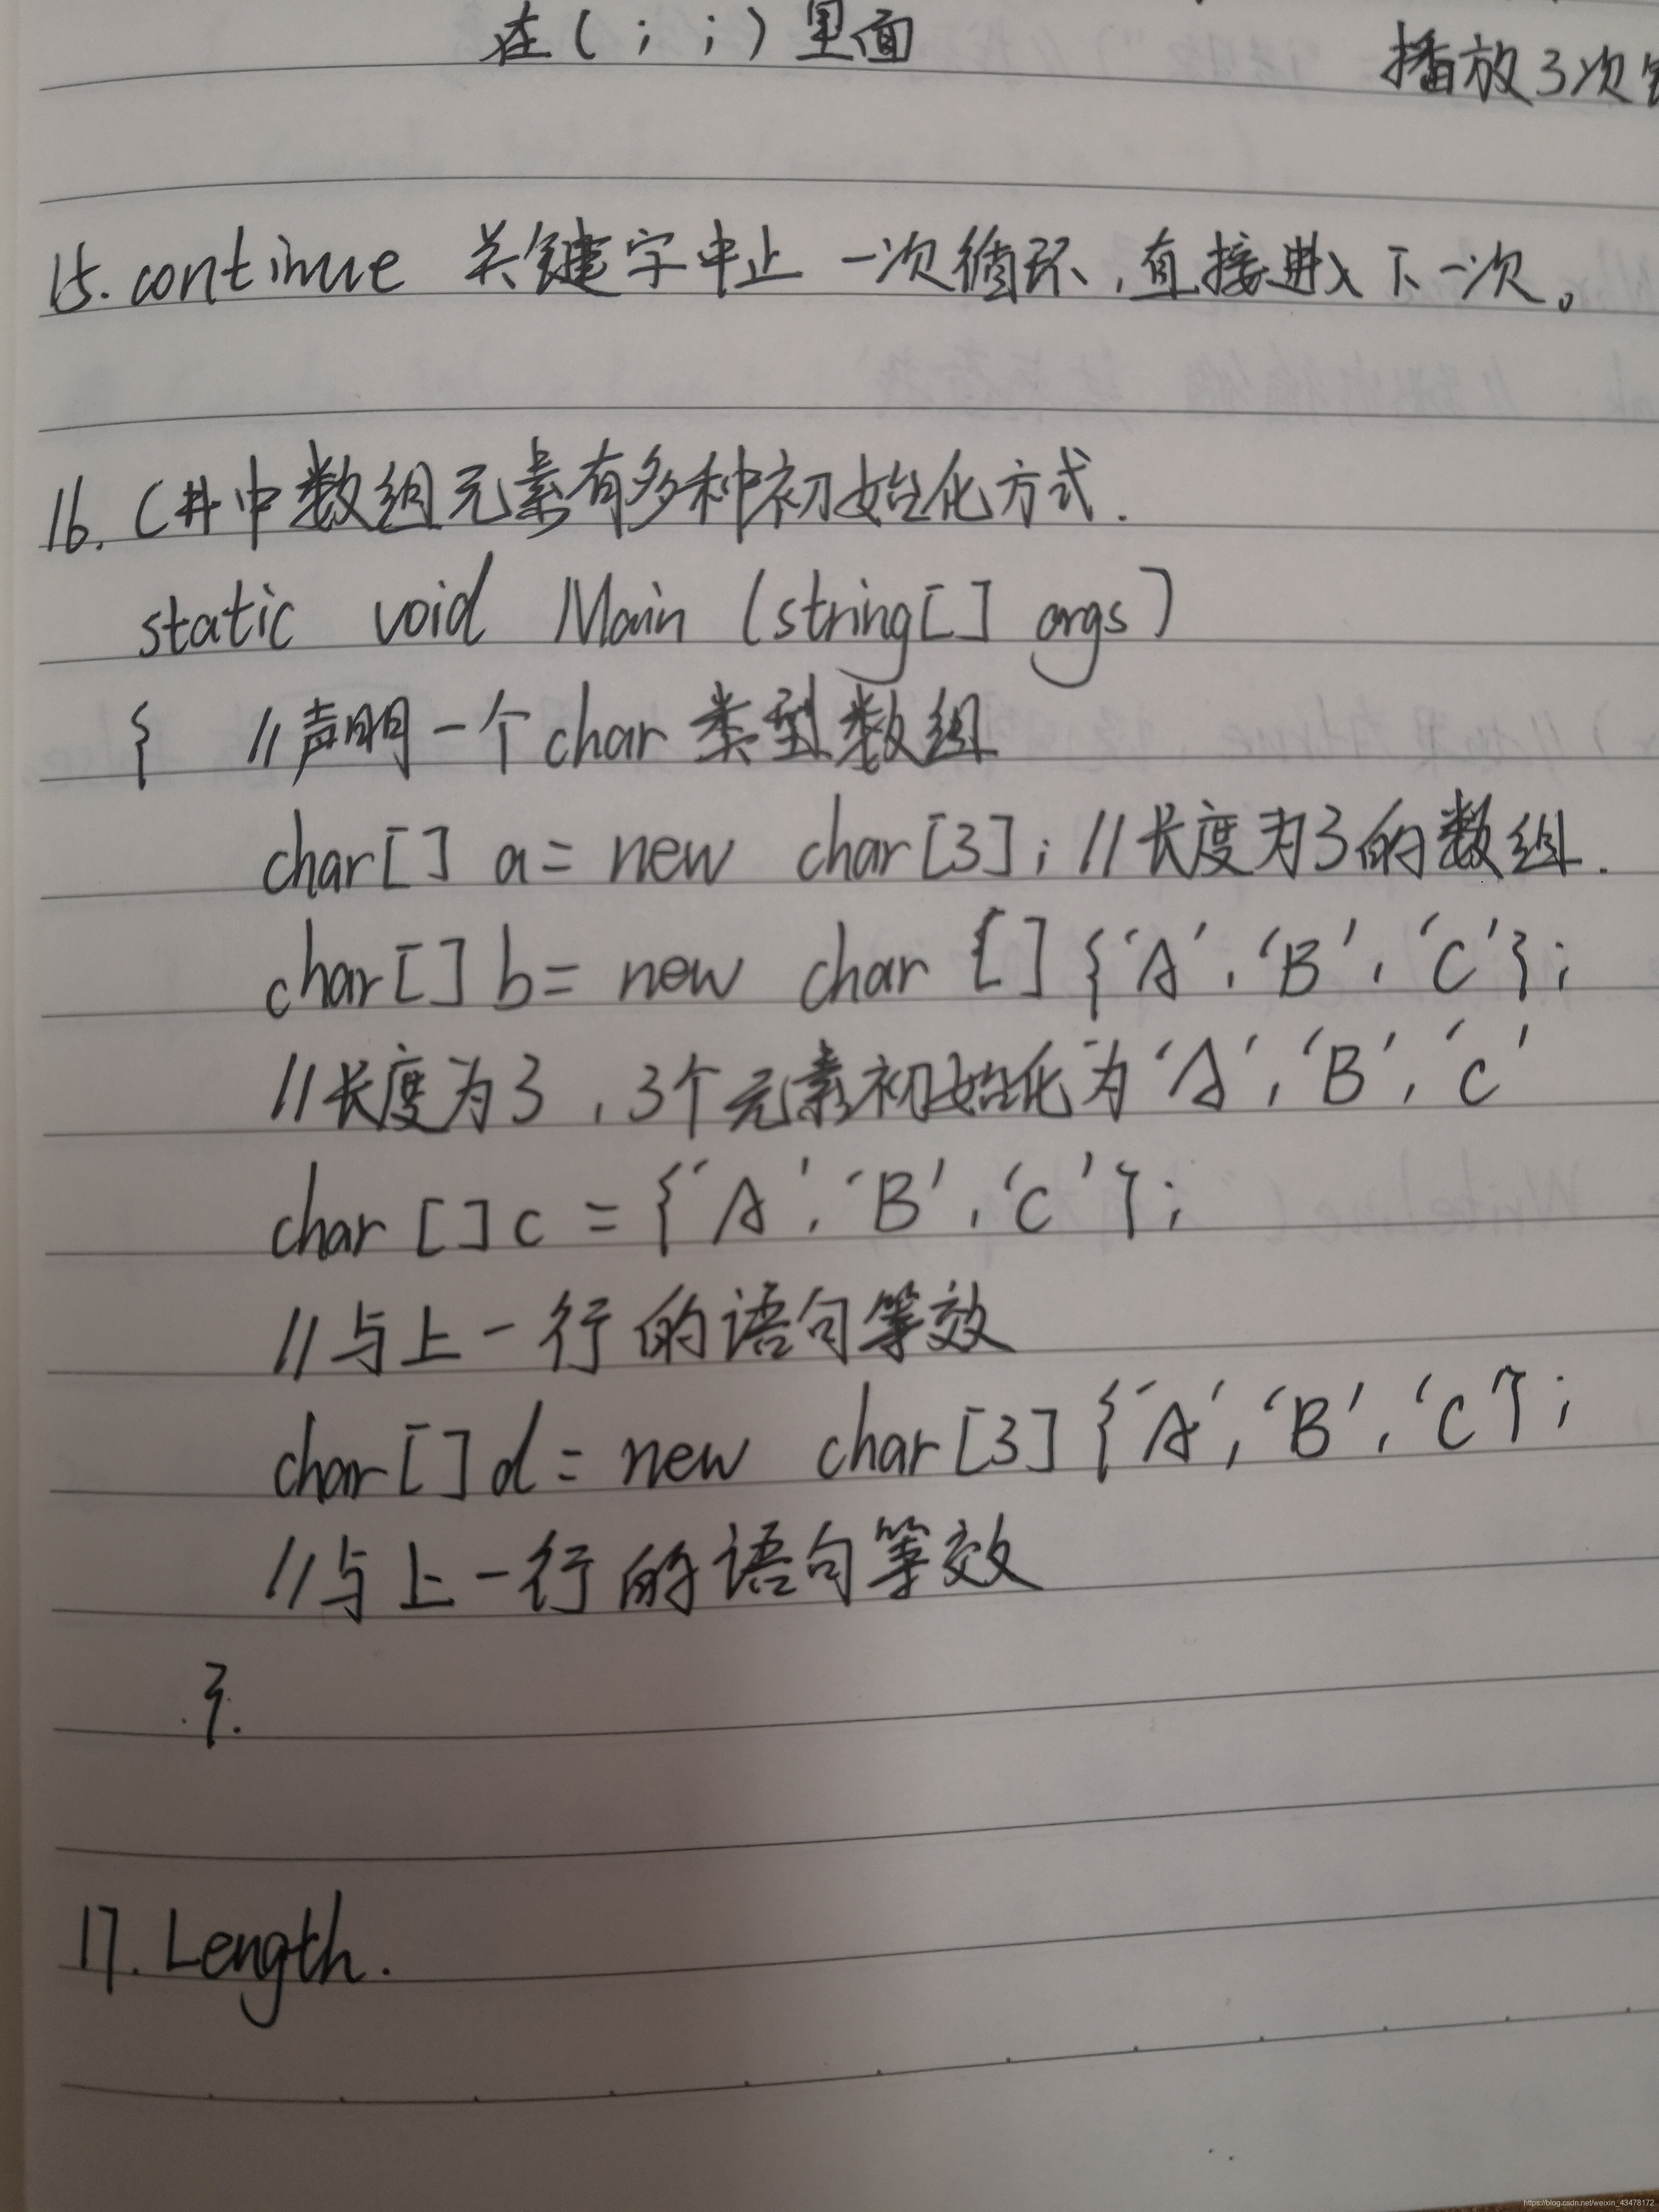 在(；；)里面
播放3次
15.continue 关键字中止一次循环,直接进入下一次。
16. C#中数组元素有多种初始化方式.
static void Main (string[] args)
{ //声明一个char类型数组
char[] a= new char[3]; //长度为3的数组.
char[] b= new char []{'A','B','C'};
//长度为3,3个元素初始化为'A','B','C'
char []c ={'A','B','C'};
//与上一行的语句等效
char[]d= new char[3]{'A','B','C'};
//与上一行的语句等效
}.
17. Length.
https://blog.csdn.net/weixin_43478172